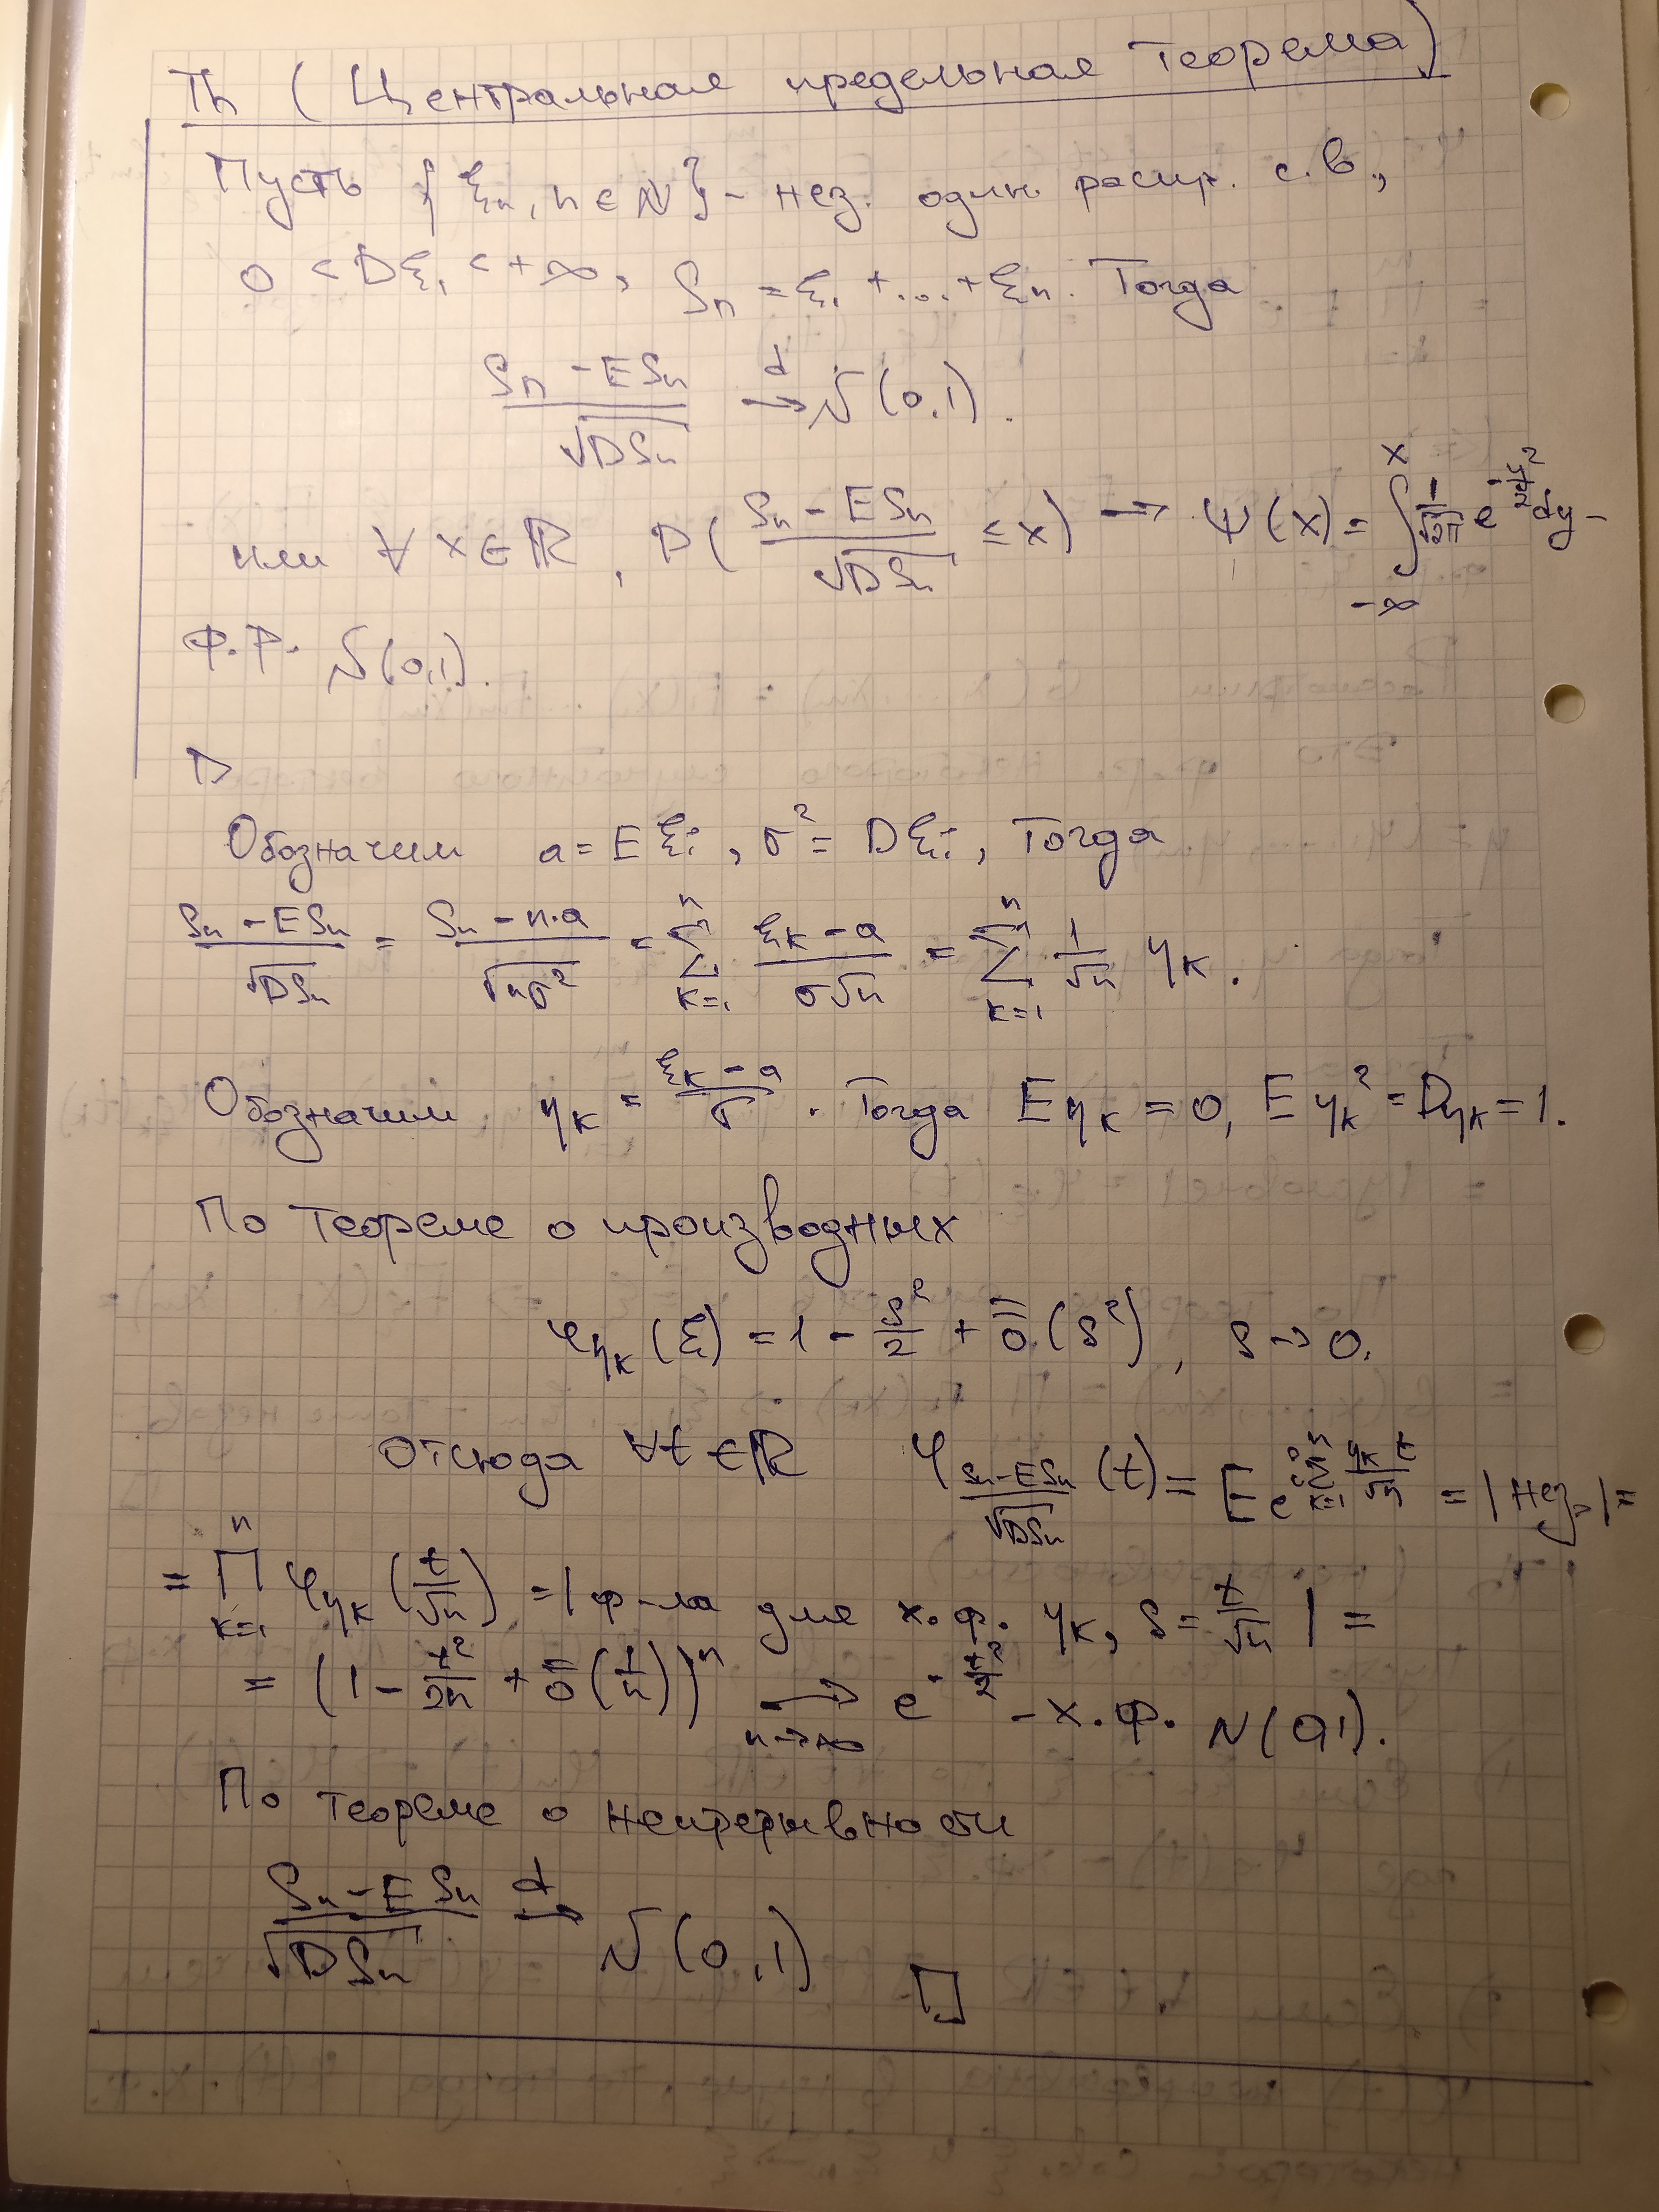 Th (Центральная предельная теорема)
Пусть {ξn, n∈N} - нез. один. распр. с.в.,
0 < Dξ₁ < +∞, Sn = ξ₁ + ... + ξn. Тогда
(Sn - ESn)/√DSn →d N(0,1).
или ∀ x∈ℝ, P((Sn - ESn)/√DSn ≤ x) → Ψ(x) = ∫_{-∞}^{x} 1/√2π e^{-y²/2} dy -
Ф.Р. N(0,1).
▷
Обозначим a = Eξi, σ² = Dξi, Тогда
(Sn - ESn)/√DSn = (Sn - n·a)/√nσ² = ∑_{k=1}^{n} (ξk - a)/(σ√n) = ∑_{k=1}^{n} 1/√n ηk.
Обозначим ηk = (ξk - a)/σ. Тогда Eηk = 0, Eηk² = Dηk = 1.
По теореме о производных
φ_{ηk}(ξ) = 1 - s²/2 + ō(s²), s → 0.
Отсюда ∀t∈ℝ φ_{(Sn-ESn)/√DSn}(t) = E e^{i∑_{k=1}^{n} ηk t/√n} = |нез.| =
= ∏_{k=1}^{n} φ_{ηk}(t/√n) = |ф-ла для х.ф. ηk, s = t/√n| =
= (1 - t²/2n + ō(1/n))ⁿ →_{n→∞} e^{-t²/2} - х.ф. N(0,1).
По теореме о непрерывности
(Sn - ESn)/√DSn →d N(0,1) □